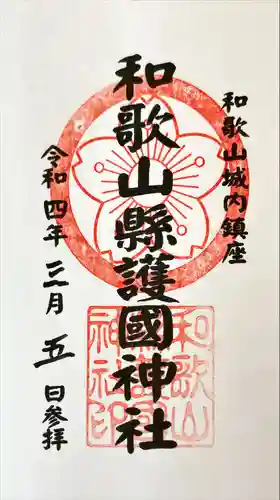 和歌山城内鎮座
和歌山縣護國神社
令和四年三月五日参拝